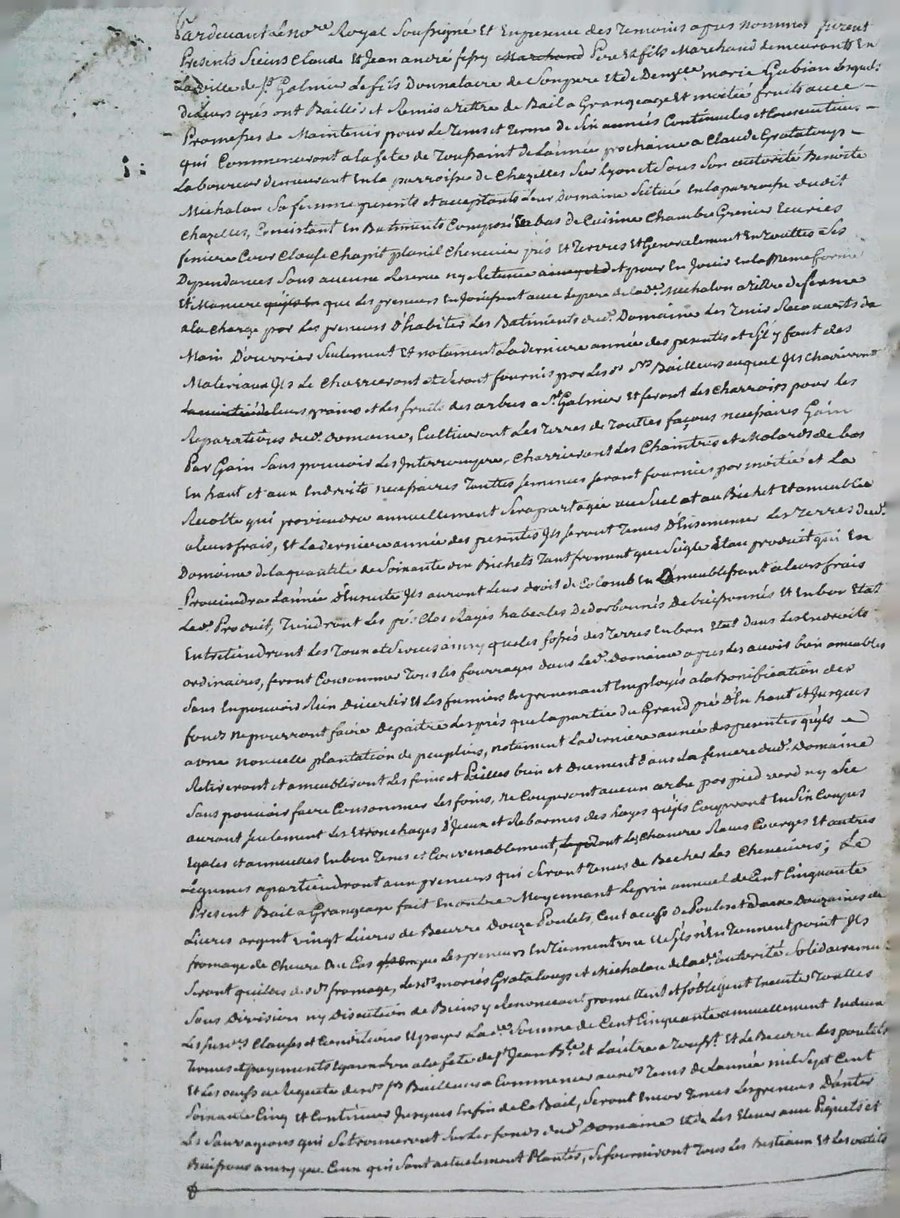 Pardevant Le nore Royal Soussigné Et En presence des Temoins apres nommés furent
Presents Sieurs Claude Et Jean andré Marchand Pere Et fils Marchand demeurants En
La ville de St Galmier Le fils Donnataire de Son pere Et de marie Gubian Lesquels
de Leurs grés ont Baillé et Remis a titre de Bail a Grangeage Et moitié fruits avec
Promesses de Maintenir pour Le Tems et Terme de Six années Continuelles et Consecutives
qui Commenceront a la fete de Toussaint de L'année prochaine a Claude Grataloup
Laboureur demeurant En la parroisse de Chazelles Sur Lyon et de Sous Son autorité Benoite
Michalon Sa femme presents et acceptants Leur Domaine Situé En la parroisse dudit
Chazelles, Consistant En Batiments Composés En bas de Cuisine Chambre Grenier Ecuries
feniere Cour Clause Chapit planil Cheneviere prés Et Terres Et Generalement En Touttes Ses
Dependances Sans aucune Reserve ny Retenue Et pour En Jouir En la Meme forme
Et Maniere que Les preneurs En Jouissent avec Le pere de lad. Michalon a titre de ferme
a la Charge par Les preneurs d'habiter Les Batiments dud. Domaine Les Tenir Recouverts de
Main D'ouvrier Seulement Et notament La derniere année des presentes et S'il y faut des
Materiaux Ils Le Charrieront et Seront fournis par Les Srs Bailleurs auquel Ils Charrieront
Leurs grains et Les fruits des arbres a St Galmier Et feront Les Charrois pour Les
Reparations dud. domaine, Cultiveront Les Terres de Touttes façons necessaires Gain
Par Gain Sans pouvoir Les Interrompre, Charrieront Les Chaintres et Molards de bas
En haut et aux Endroits necessaires Touttes Semences Seront fournies par moitié et La
Recolte qui proviendra annuellement Sera partagée au Bichet Et ameublée
a leurs frais, Et La derniere année des presentes Ils Seront Tenus D'Ensemencer Les Terres dud.
Domaine de la quantité de Soixante dix Bichets Tant froment que Seigle Et au produit qui En
Proviendra L'année D'Ensuite Ils auront Leur droit de Colomb En L'ameublissant a leurs frais
Led. Produit, Tiendront Les prés Clos Rayés Deborbounés Debuissonnés et En bon Etat
Entretiendront Les ainsy que Les fossés des Terres En bon Etat dans Les Endroits
ordinaires, feront Consommer Tous Les fourrages dans Led. Domaine apres Les avoir bien ameublés
Sans En pouvoir Rien Divertir Et Les fumiers En provenant Employés a la Bonification des
fonds ne pourront faire Depaitre Les prés que la partie du Grand pré D'En haut et Jusques
a une nouvelle plantation de peupliers, notament La derniere année des presentes qu'ils
Retireront et ameubliront Les foins et Pailles bien et Duement dans La feniere dud. Domaine
Sans pouvoir faire Consommer Les foins, ne Couperont aucun arbre par pied verd ny Sec
auront Seulement Les Etronchages D'Iceux et Rebarmes des hayes qu'ils Couperont En Six Coupes
Egales et annuelles En bon Tems et Convenablement, Le Chanvre Raves Courges Et autres
Legumes apartiendront aux preneurs qui Seront Tenus de Becher Les Chenevieres; Le
Present Bail a Grangeage fait En outre Moyennant Le prix annuel de Cent Cinquante
Livres argent vingt Livres de Beurre Douze Poulets Cent oeufs de Poules et Deux Douzaines de
fromage de Chevre au Cas que Les preneurs En Tiennent une Et S'ils n'En Tiennent point Ils
Seront quittes des d. fromage, Les d. mariés Grataloup et Michalon de lad. autorité Solidairement
Sans Division ny Discution de Biens y Renonceant promettent et S'obligent Entretenir Touttes
Les Susdes Clauses et Conditions Et payer Lade Somme de Cent Cinquante annuellement In deux
Termes et payements Egaux a la fete de St Jean Bte et L'autre a Toust Et Le Beurre Les poulets
Et Les oeufs au Requete desds Srs Bailleurs a Commencer auxds Tems de L'année mil Sept Cent
Soixante Cinq Et Continuer Jusques la fin de Ce Bail, Seront Encor Tenus Les preneurs D'anter
Les Sauvageons qui Se trouveront Sur Les fonds dud. Domaine et de Les Elever aux Piquets et
Buissons ainsy que Ceux qui Sont actuellement Plantés, Se fourniront Tous Les Bestiaux Et Les outils